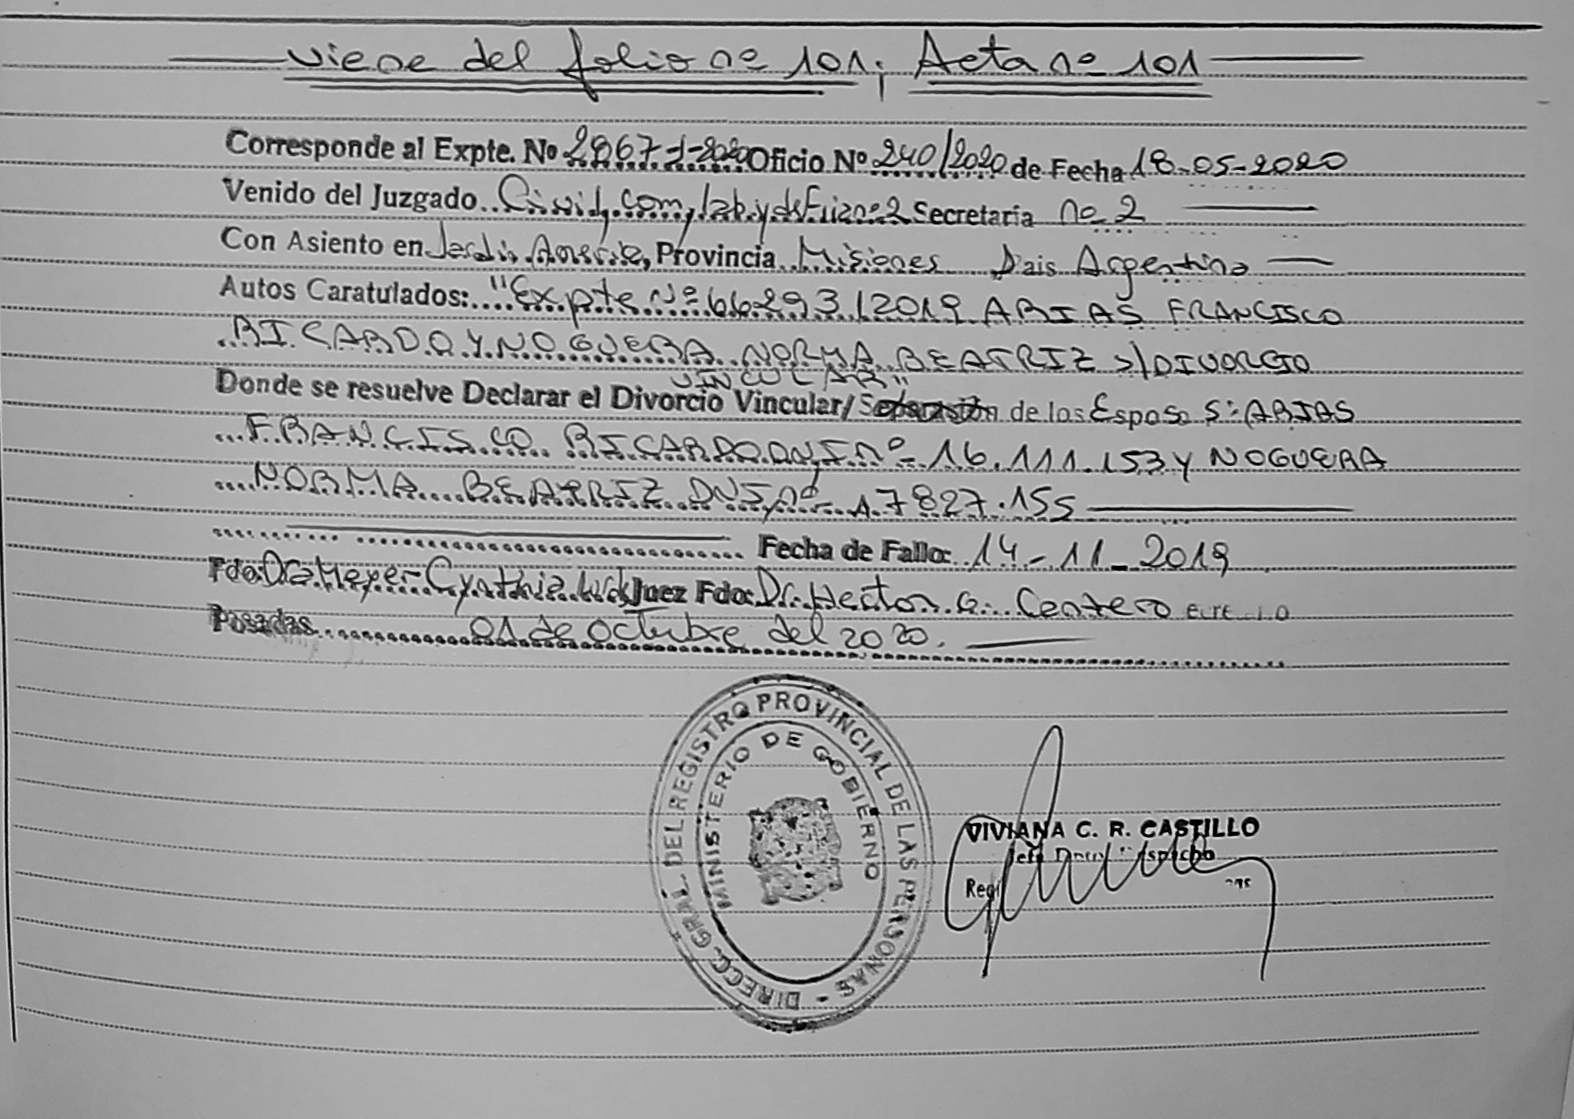 Viene del folio nº 101; Acta nº 101
Corresponde al Expte. Nº 2867-J-2020 Oficio Nº 240/2020 de Fecha 18-05-2020
Venido del Juzgado Civil, Com, lab. y de Flia nº 2 Secretaria nº 2
Con Asiento en Jardin America, Provincia Misiones Pais Argentina
Autos Caratulados: "Expte Nº 66293/2019 ARIAS FRANCISCO
RICARDO Y NOGUERA NORMA BEATRIZ S/DIVORCIO
VINCULAR"
Donde se resuelve Declarar el Divorcio Vincular/ Separación de los Esposos: ARIAS
FRANCISCO RICARDO DNI nº 16.111.153 Y NOGUERA
NORMA BEATRIZ DNI nº 17827.155
Fecha de Fallo: 14-11-2019
Fdo: Dra Meyer Cynthia Juez Fdo: Dr. Hector G. Centero
Posadas 01 de Octubre del 2020.
DIRECC. GRAL. DEL REGISTRO PROVINCIAL DE LAS PERSONAS -
MINISTERIO DE GOBIERNO
VIVIANA C. R. CASTILLO